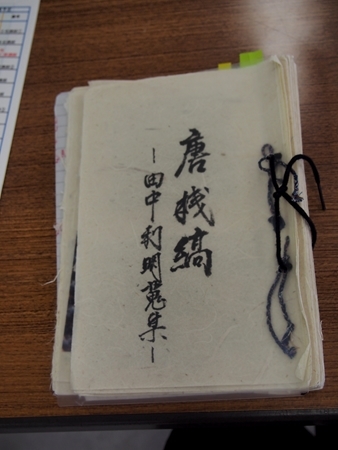 唐桟縞
－田中利明蒐集－